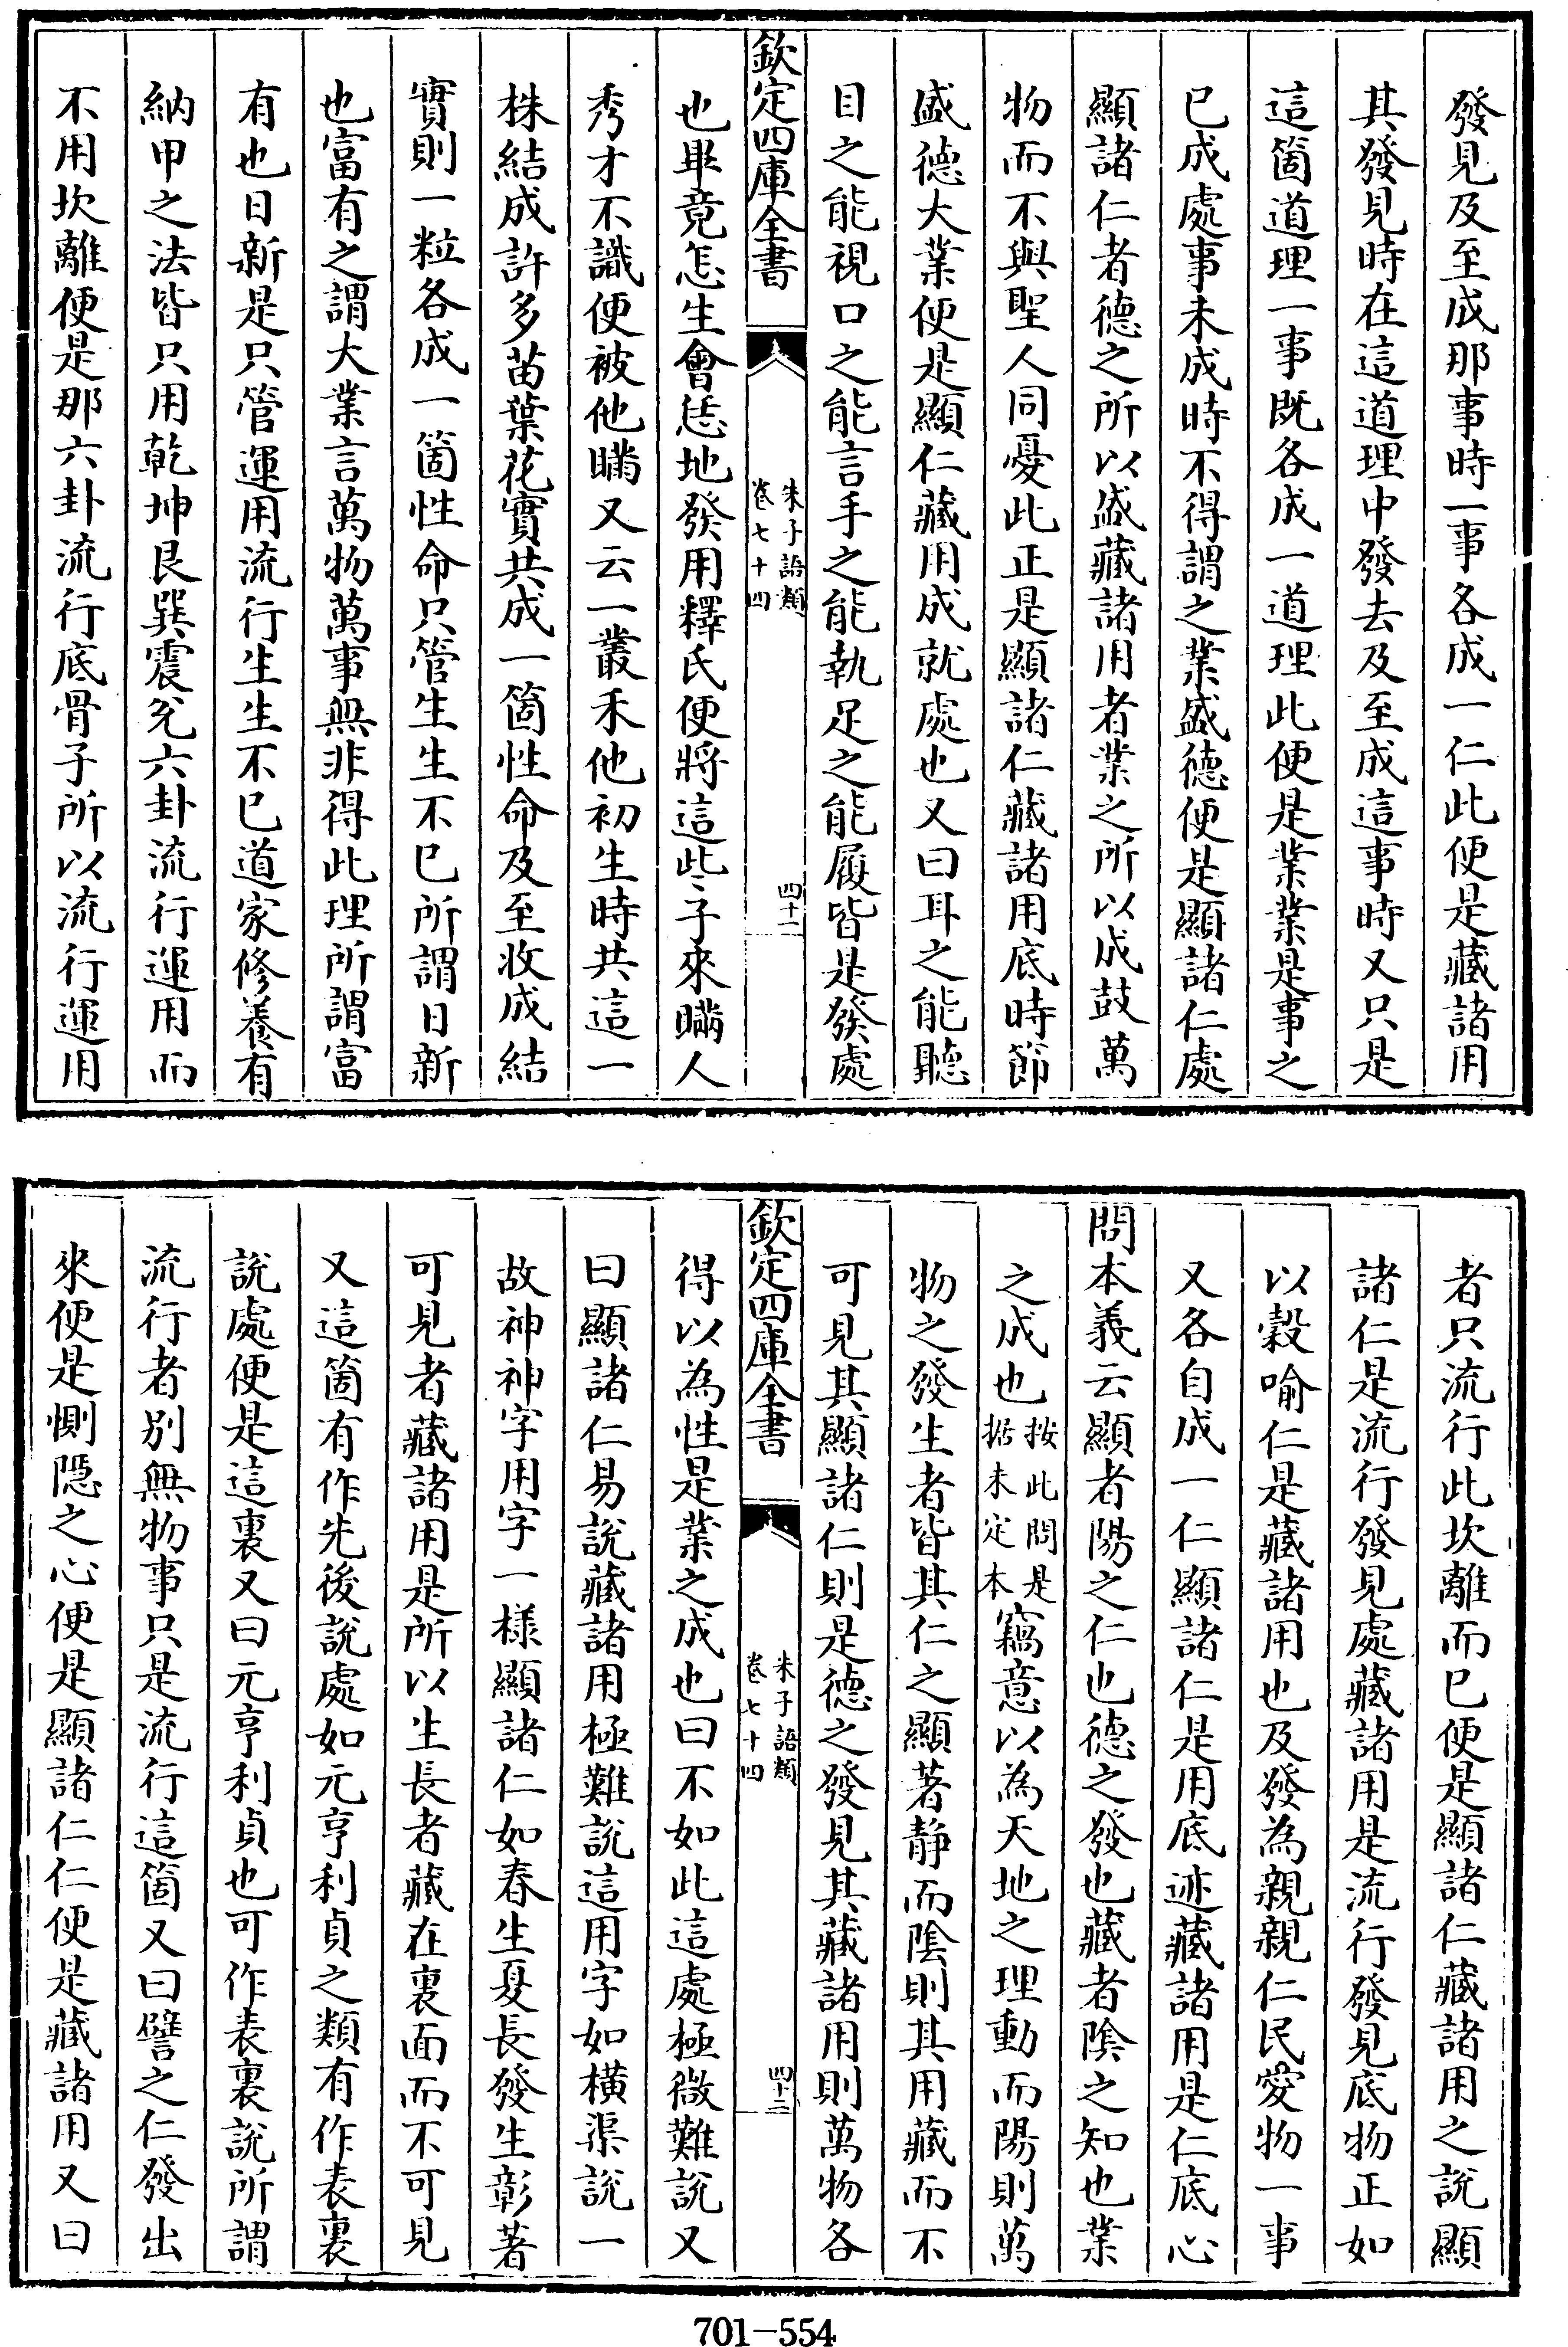 發見及至成那事時一事各成一仁此便是藏諸用
其發見時在這道理中發去及至成這事時又只是
這箇道理一事既各成一道理此便是業業是事之
已成處事未成時不得謂之業盛德便是顯諸仁處
顯諸仁者德之所以盛藏諸用者業之所以成鼓萬
物而不與聖人同憂此正是顯諸仁藏諸用底時節
盛德大業便是顯仁藏用成就處也又曰耳之能聽
目之能視口之能言手之能執足之能履皆是發處
欽定四庫全書
朱子語類
卷七十四
四十一
也畢竟怎生會恁地發用釋氏便將這些子來瞞人
秀才不識便被他瞞又云一叢禾他初生時共這一
株結成許多苗葉花實共成一箇性命及至收成結
實則一粒各成一箇性命只管生生不已所謂日新
也富有之謂大業言萬物萬事無非得此理所謂富
有也日新是只管運用流行生生不已道家修養有
納甲之法皆只用乾坤艮巽震兌六卦流行運用而
不用坎離便是那六卦流行底骨子所以流行運用
者只流行此坎離而已便是顯諸仁藏諸用之說顯
諸仁是流行發見處藏諸用是流行發見底物正如
以穀喻仁是藏諸用也及發為親親仁民愛物一事
又各自成一仁顯諸仁是用底迹藏諸用是仁底心
問本義云顯者陽之仁也德之發也藏者陰之知也業
之成也按此問是據未定本竊意以為天地之理動而陽則萬
物之發生者皆其仁之顯著靜而陰則其用藏而不
可見其顯諸仁則是德之發見其藏諸用則萬物各
欽定四庫全書
朱子語類
卷七十四
四十二
得以為性是業之成也曰不如此這處極微難說又
曰顯諸仁易說藏諸用極難說這用字如橫渠說一
故神神字用字一樣顯諸仁如春生夏長發生彰著
可見者藏諸用是所以生長者藏在裏面而不可見
又這箇有作先後說處如元亨利貞之類有作表裏
說處便是這裏又曰元亨利貞也可作表裏說所謂
流行者別無物事只是流行這箇又曰譬之仁發出
來便是惻隱之心便是顯諸仁仁便是藏諸用又曰
701-554